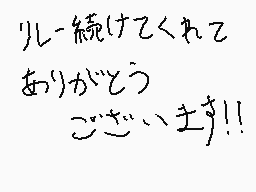 リレー続けてくれて
ありがとう
ございます!!